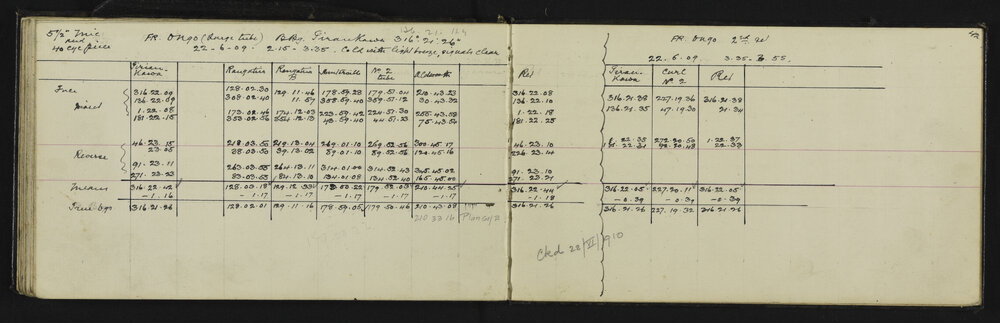 5½" Mic
and
40 eye piece
FR. Ongo (Large tube) Bdg. Tiraukawa 316° 21' 26"
22-6-09. 2.15-3.35. Cold with light breeze, signals clear
FR. Ongo 2nd set
22.6.09 3.35-3.55.
Rangitira Rangatira B No 2 tube Aldworth Ref
Curl No 2 Ref
Face
Direct
316.22.09 128.02.30 129.11.46 178.59.28 179.51.04 210.43.23 316.22.08
136.22.09 308.02.40 11.57 358.59.40 359.51.12 30.43.32 136.22.10
1.22.08 173.02.46 174.12.03 223.59.42 224.51.30 255.43.58 1.22.18
181.22.15 353.02.56 354.12.13 43.59.40 44.51.23 75.43.54 181.22.25
316.21.38 227.19.36 316.21.38
136.21.35 47.19.30 21.34
Reverse
46.23.15 218.03.50 219.13.04 269.01.10 269.52.56 300.45.17 46.23.10
23.05 38.03.53 39.13.02 89.01.10 89.52.56 120.45.16 226.23.14
1.22.35 272.20.50 1.22.37
92.20.48 22.33
91.23.11 263.03.55 264.13.11 314.01.00 314.52.43 345.45.02 91.23.10
271.23.23 83.03.55 84.13.10 134.01.08 134.52.40 165.45.00 271.23.21
Means 316.22.42 128.03.18 129.12.33 179.00.22 179.52.03 210.44.25 316.22.44
-1.16 -1.17 -1.17 -1.17 -1.17 -1.17 -1.18
316.22.05 227.20.11 316.22.05
-0.39 -0.39 -0.39
True bgs 316.21.26 128.02.01 129.11.16 178.59.05 179.50.46 210.43.08 316.21.26
316.21.26 227.19.32 316.21.26
Ckd 28/VI/1910